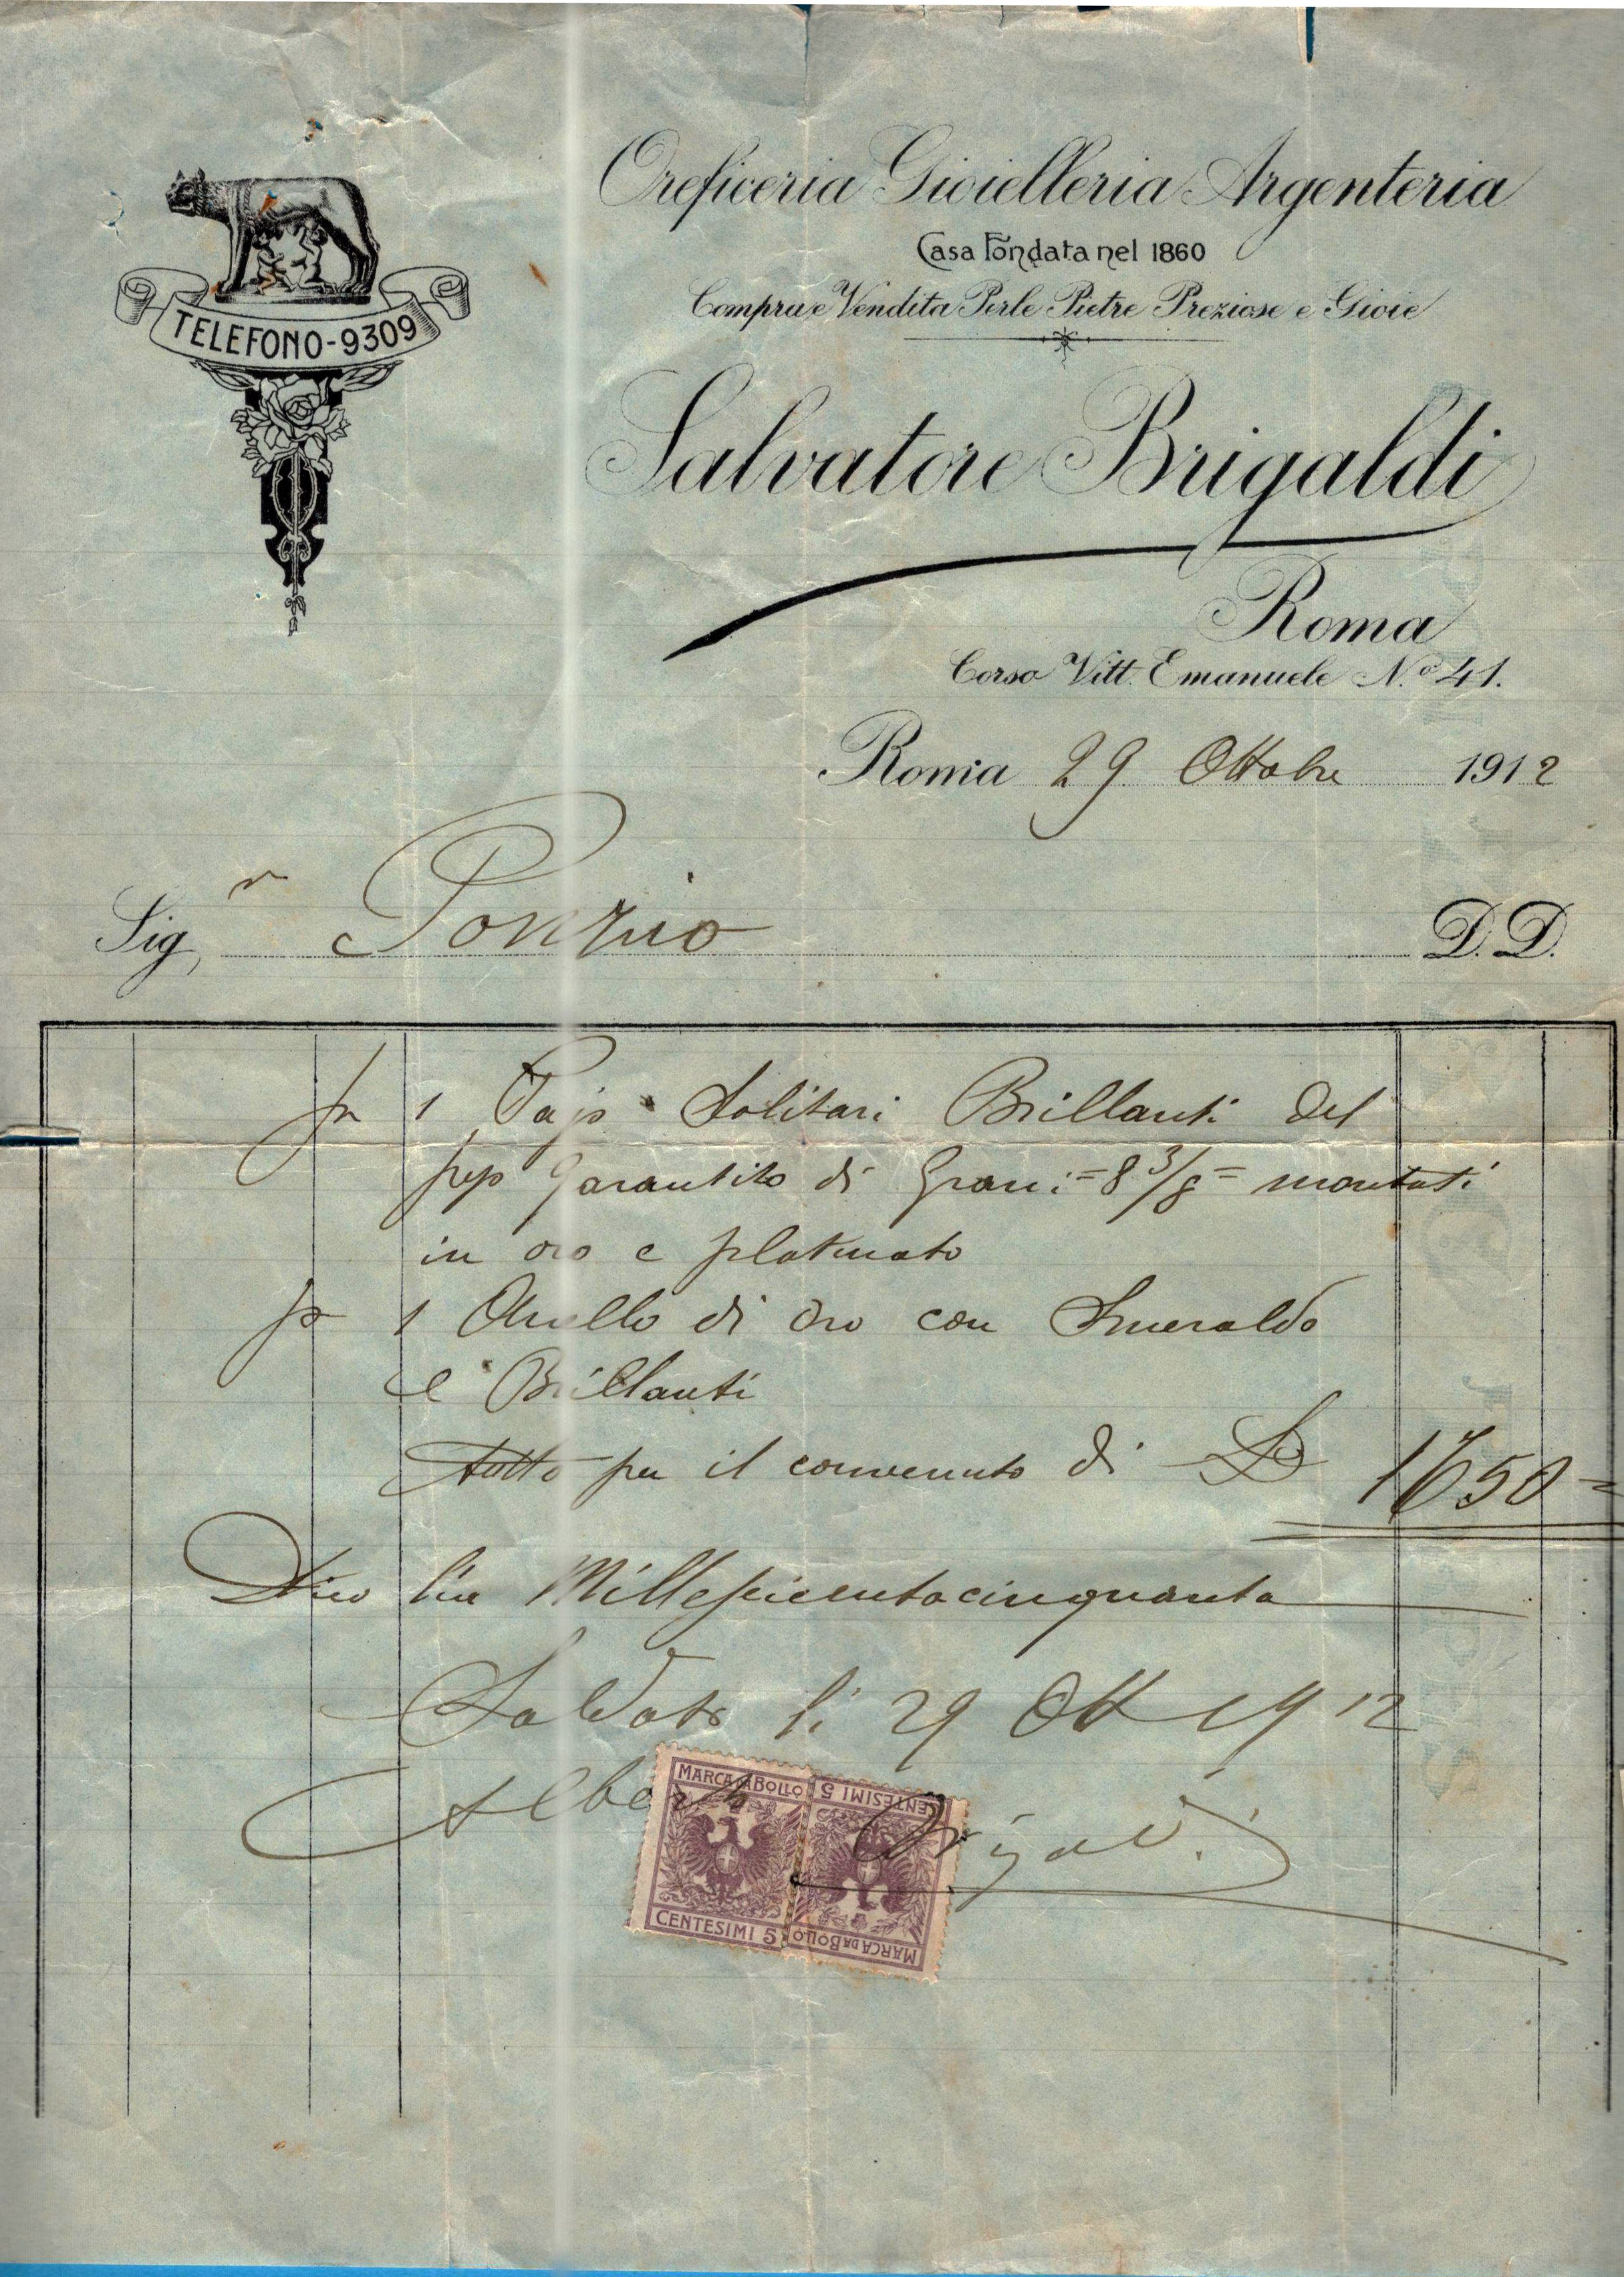 Oreficeria Gioielleria Argenteria
Casa Fondata nel 1860
Compra e Vendita Perle Pietre Preziose e Gioie
TELEFONO-9309
Salvatore Brigaldi
Roma
Corso Vitt. Emanuele N.o 41.
Roma 29 Ottobre 1912
Sig r Ponzio D.D.
1 Pajo Solitari Brillanti del
peso Garantito di Grani = 8 3/8 = montati
in oro e platinato
1 Anello di oro con Smeraldo
e Brillanti
tutto per il convenuto di L 1650=
Dico lire Milleseicentocinquanta
Saldato li 29 Ott 1912
Alberto Brigaldi
MARCA DA BOLLO
CENTESIMI 5
CENTESIMI 5
MARCA DA BOLLO